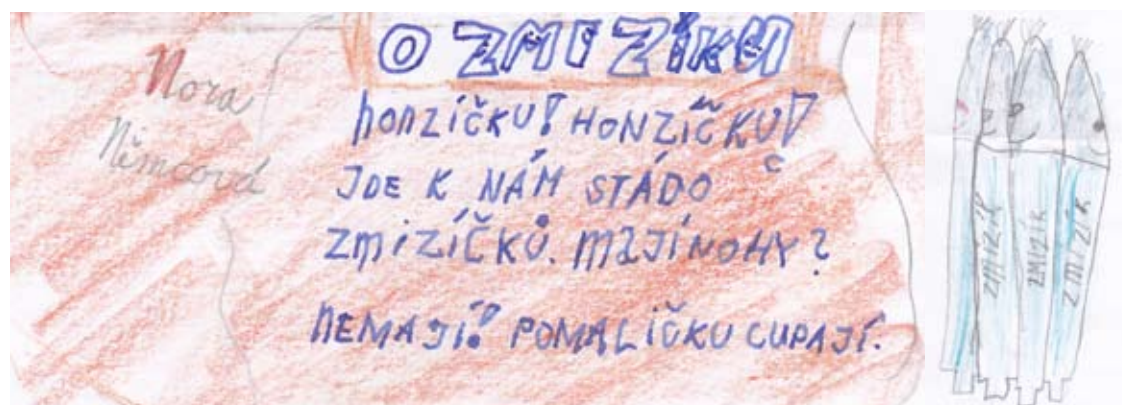 Nora
Němcová
O ZMIZÍKU
honzíčku! HONZÍČKU!
JDE K NÁM STÁDO
ZMIZÍČKŮ. MAJÍ NOHY?
NEMAJÍ! POMALIČKU CUPAJÍ.
ZMIZÍK
ZMIZÍK
ZMIZÍK